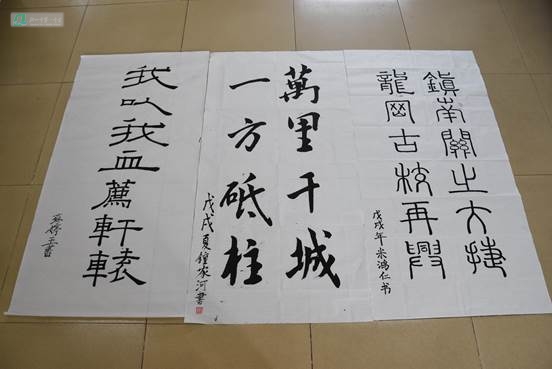 鎮南關之大捷
龍岡古校再興
戊戌年米鴻仁书
萬里千城
一方砥柱
戊戌夏鐘家河書
我以我血薦軒轅
書